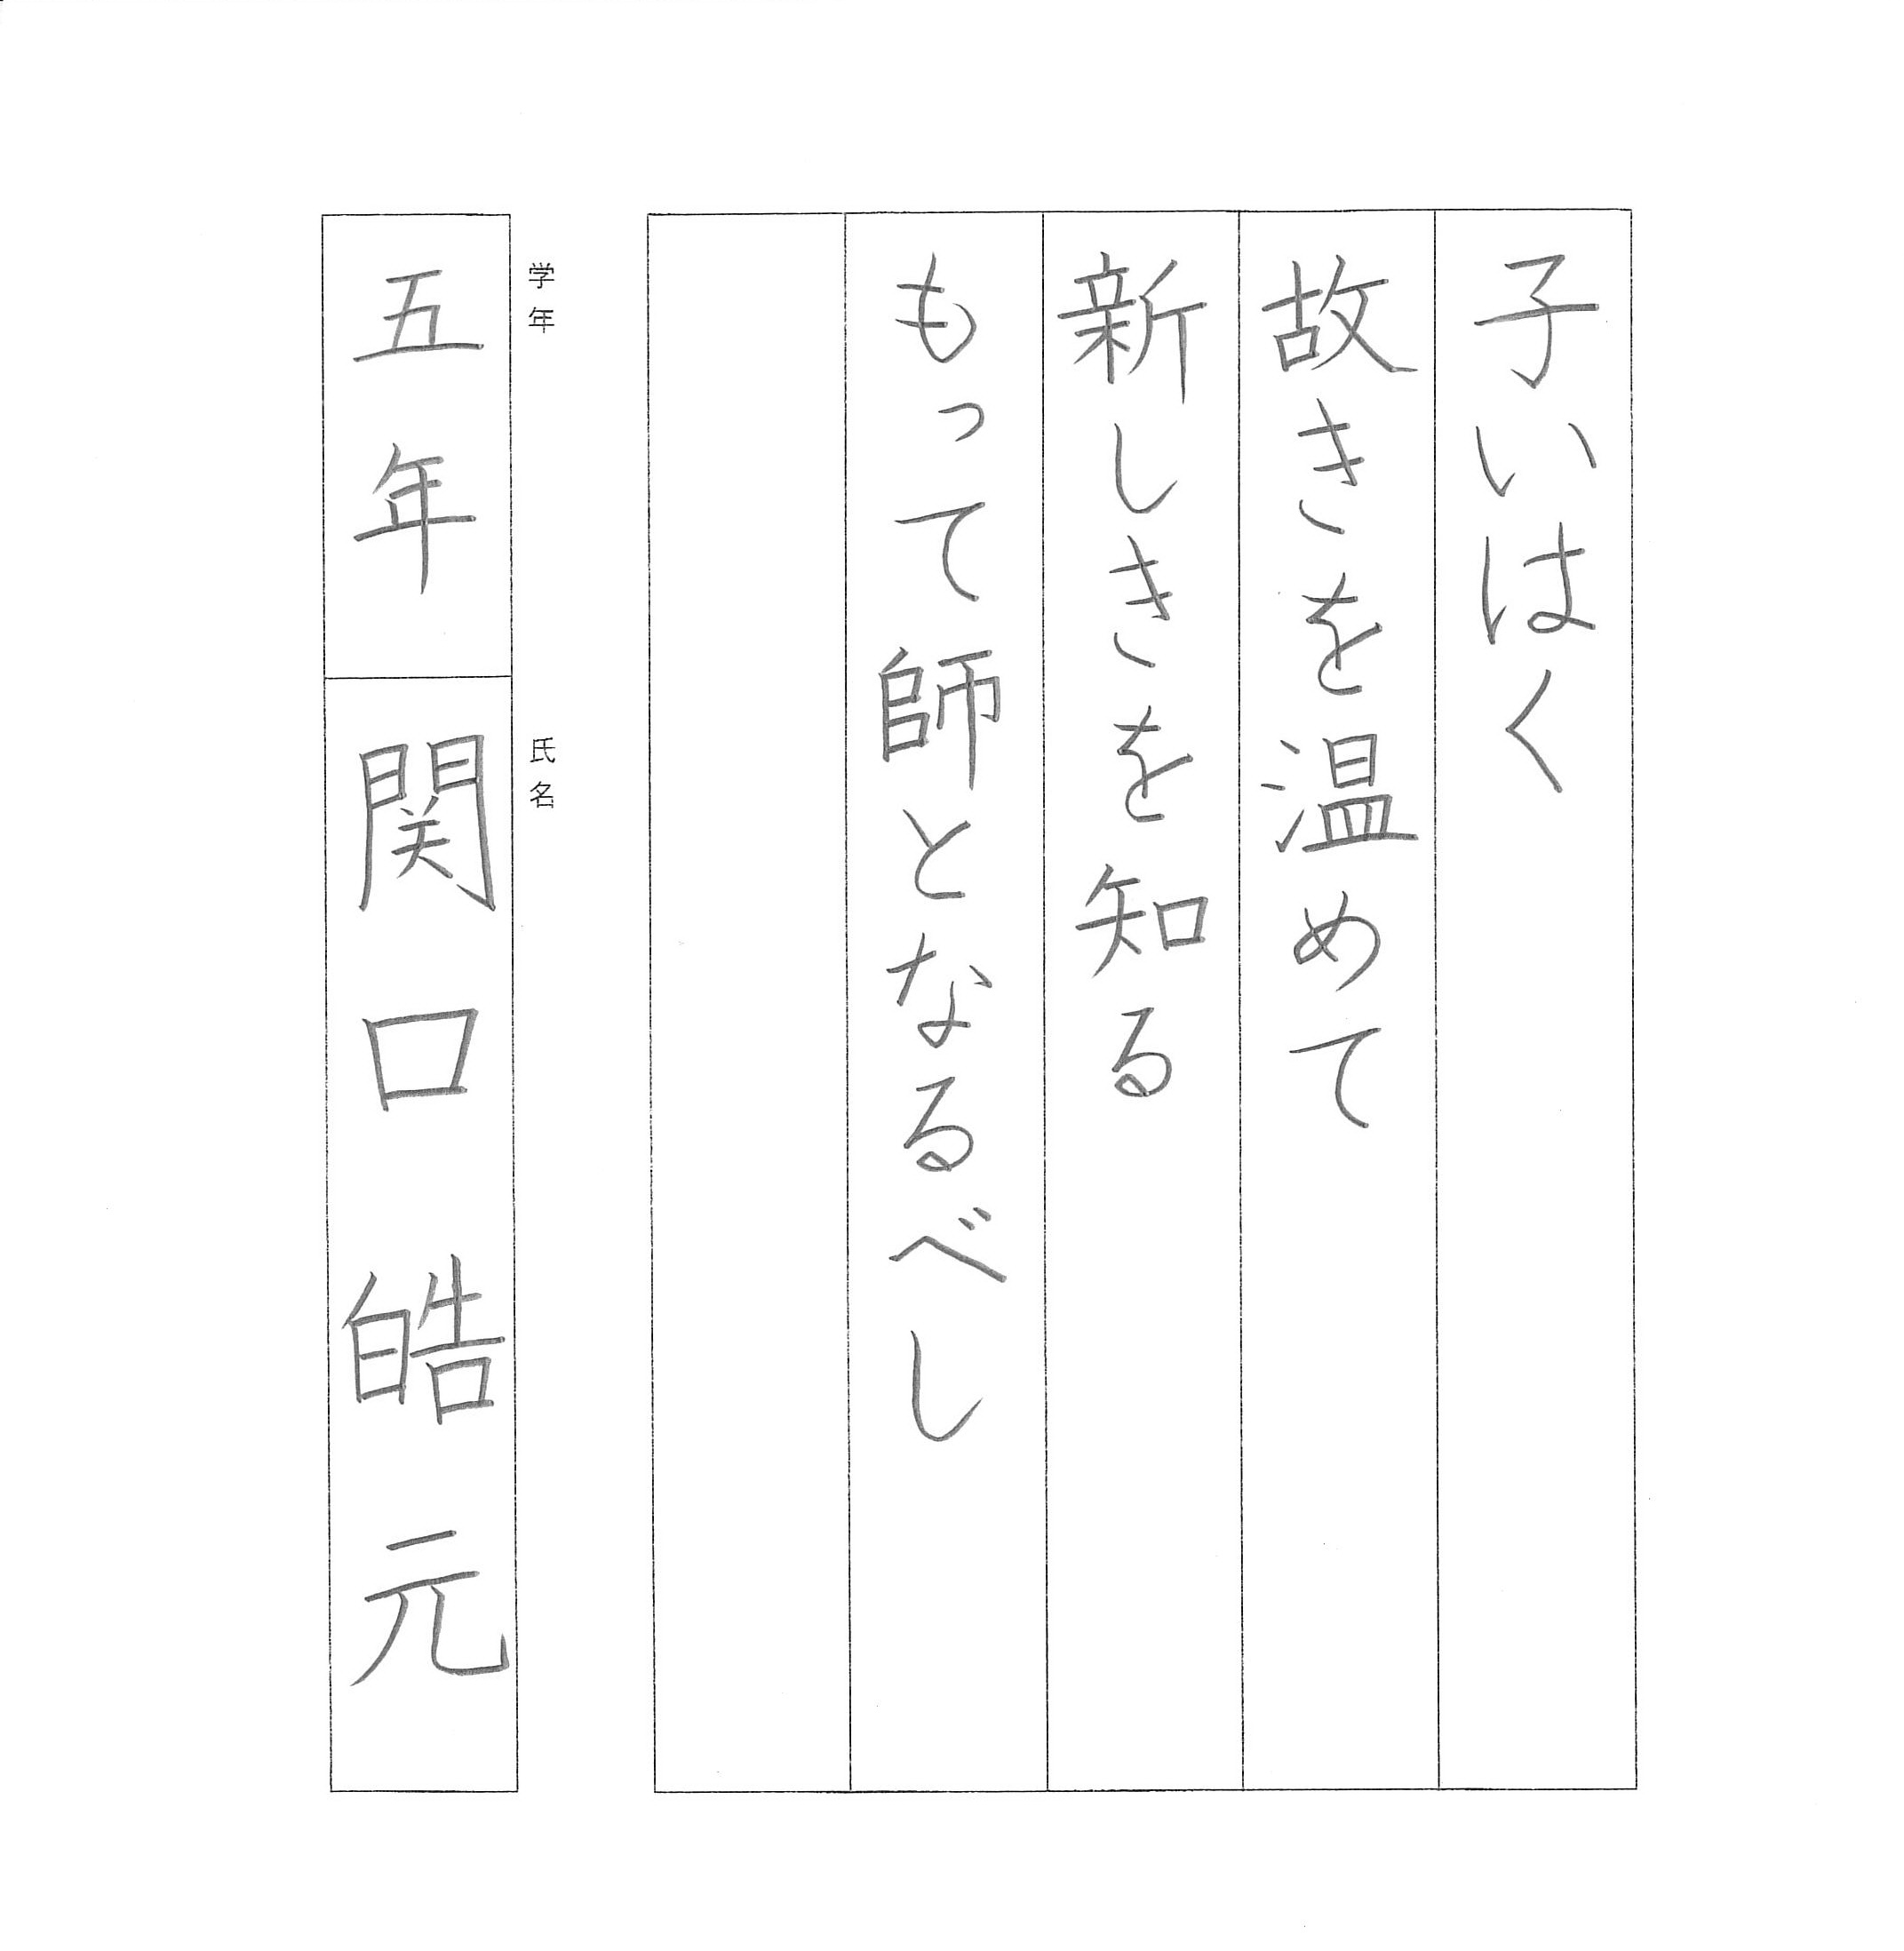 子いはく
故きを温めて
新しきを知る
もって師となるべし
学年
五年
氏名
関口皓元